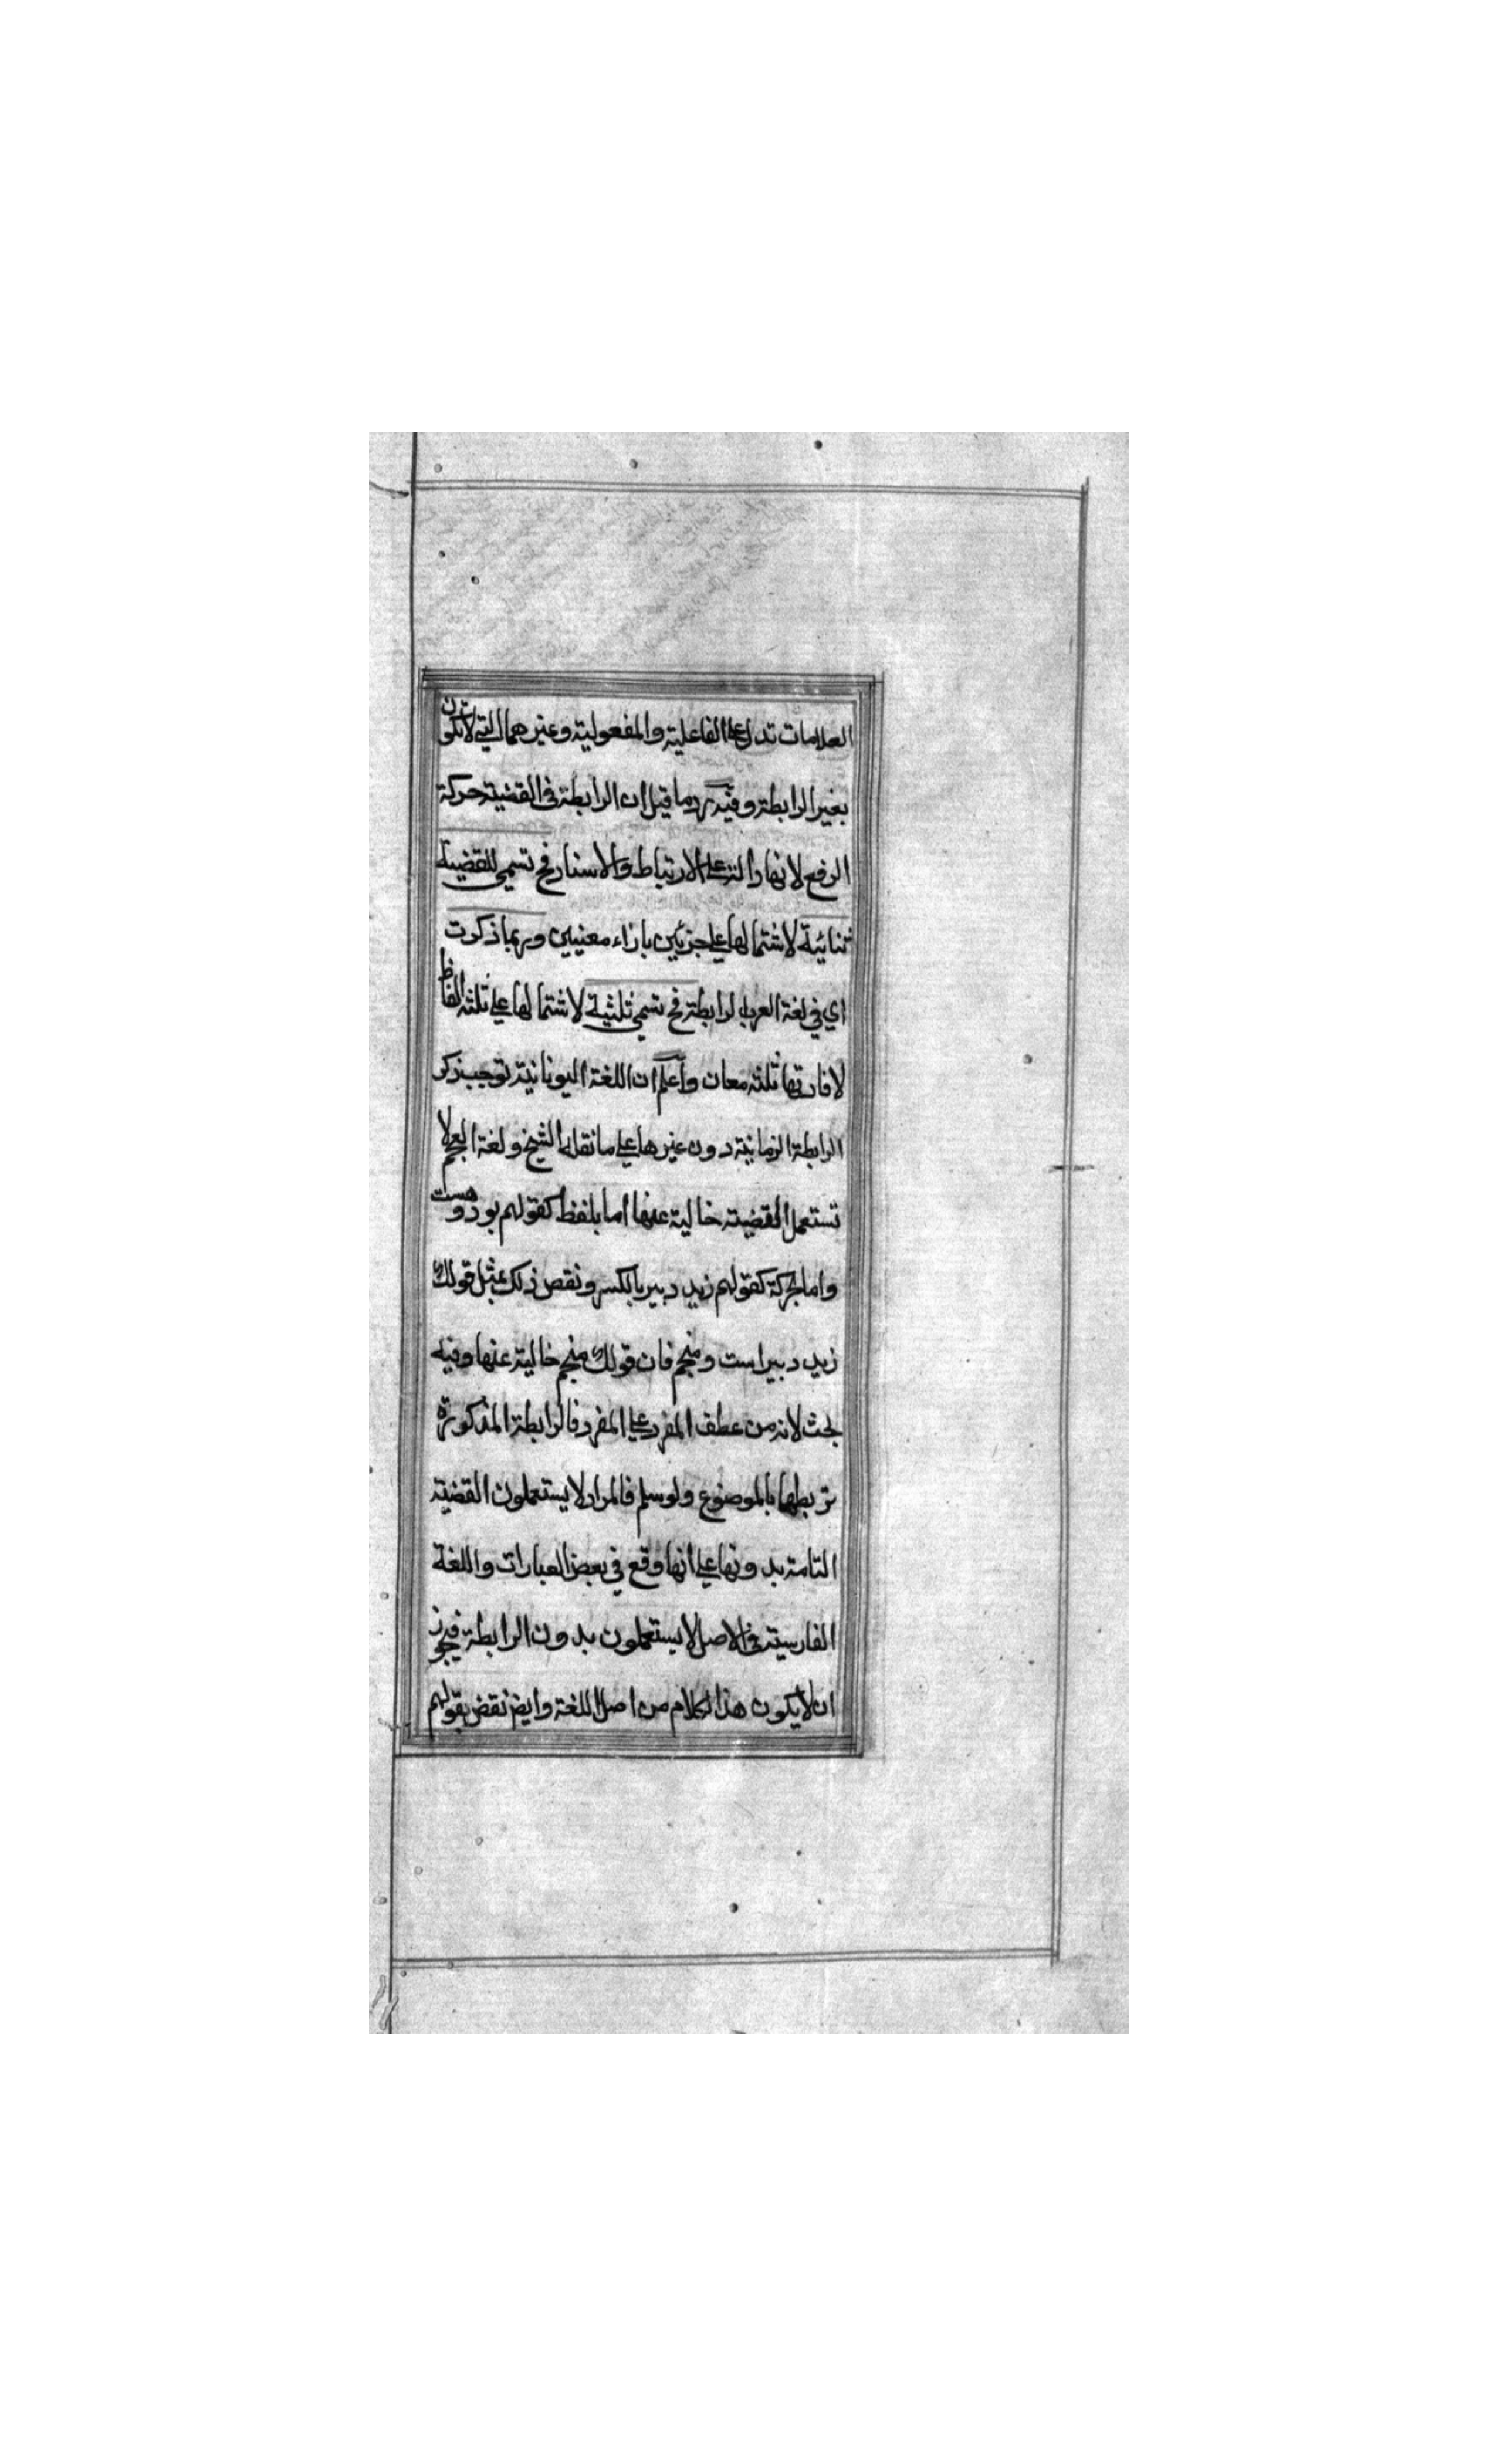 العلامات تدل على الفاعلية والمفعولية وغيرهما التي لا تكون
بغير الرابطة وفيه رد ما قيل ان الرابطة في القضية حركة
الرفع لانها دالة على الارتباط والاسناد فح تسمى القضية
ثنائية لاشتمالها على جزئين بازاء معنيين وربما ذكرت
اي في لغة العرب الرابطة فح تسمى ثلثية لاشتمالها على ثلثة الفاظ
لافادتها ثلثة معان واعلم ان اللغة اليونانية توجب ذكر
الرابطة الزمانية دون غيرها على ما نقله الشيخ ولغة العجم لا
تستعمل القضية خالية عنها اما بلفظ كقولهم بود وهست
واما بحركة كقولهم زيد دبير بالكسر ونقض ذلك بمثل قولك
زيد دبير است ومنجم فان قولك منجم خالية عنها وفيه
بحث لانه من عطف المفرد على المفرد فالرابطة المذكورة
تربطها بالموضوع ولو سلم فالمراد لا يستعملون القضية
التامة بدونها على انها وقع في بعض العبارات واللغة
الفارسية في الاصل لا يستعملون بدون الرابطة فيجوز
ان لا يكون هذا الكلام من اصل اللغة وايض نقض بقولهم